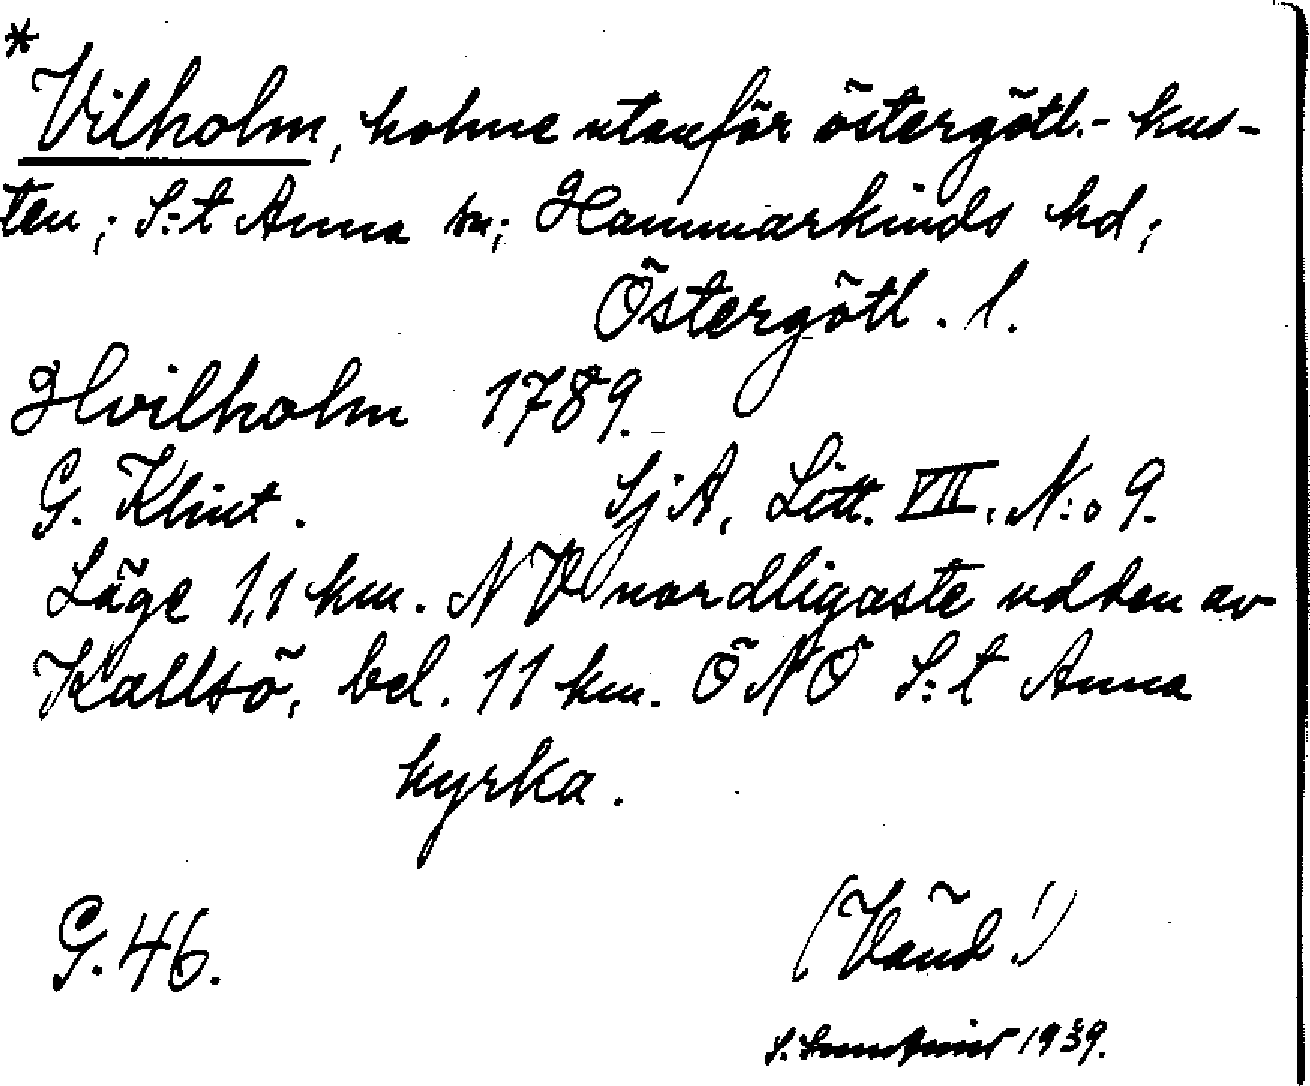 *
Vilholm, holme utanför östergötl.- kus-
ten; S:t Anna sn; Hammarkinds hd;
Östergötl. l.
Hvilholm 1789.
G. Klint. SjA, Litt. VII. N:o 9.
Läge 1,1 km. NV nordligaste udden av
Kallsö, bel. 11 km. ÖNÖ S:t Anna
kyrka.
G. 46. (Vänd!)
S. 1939.